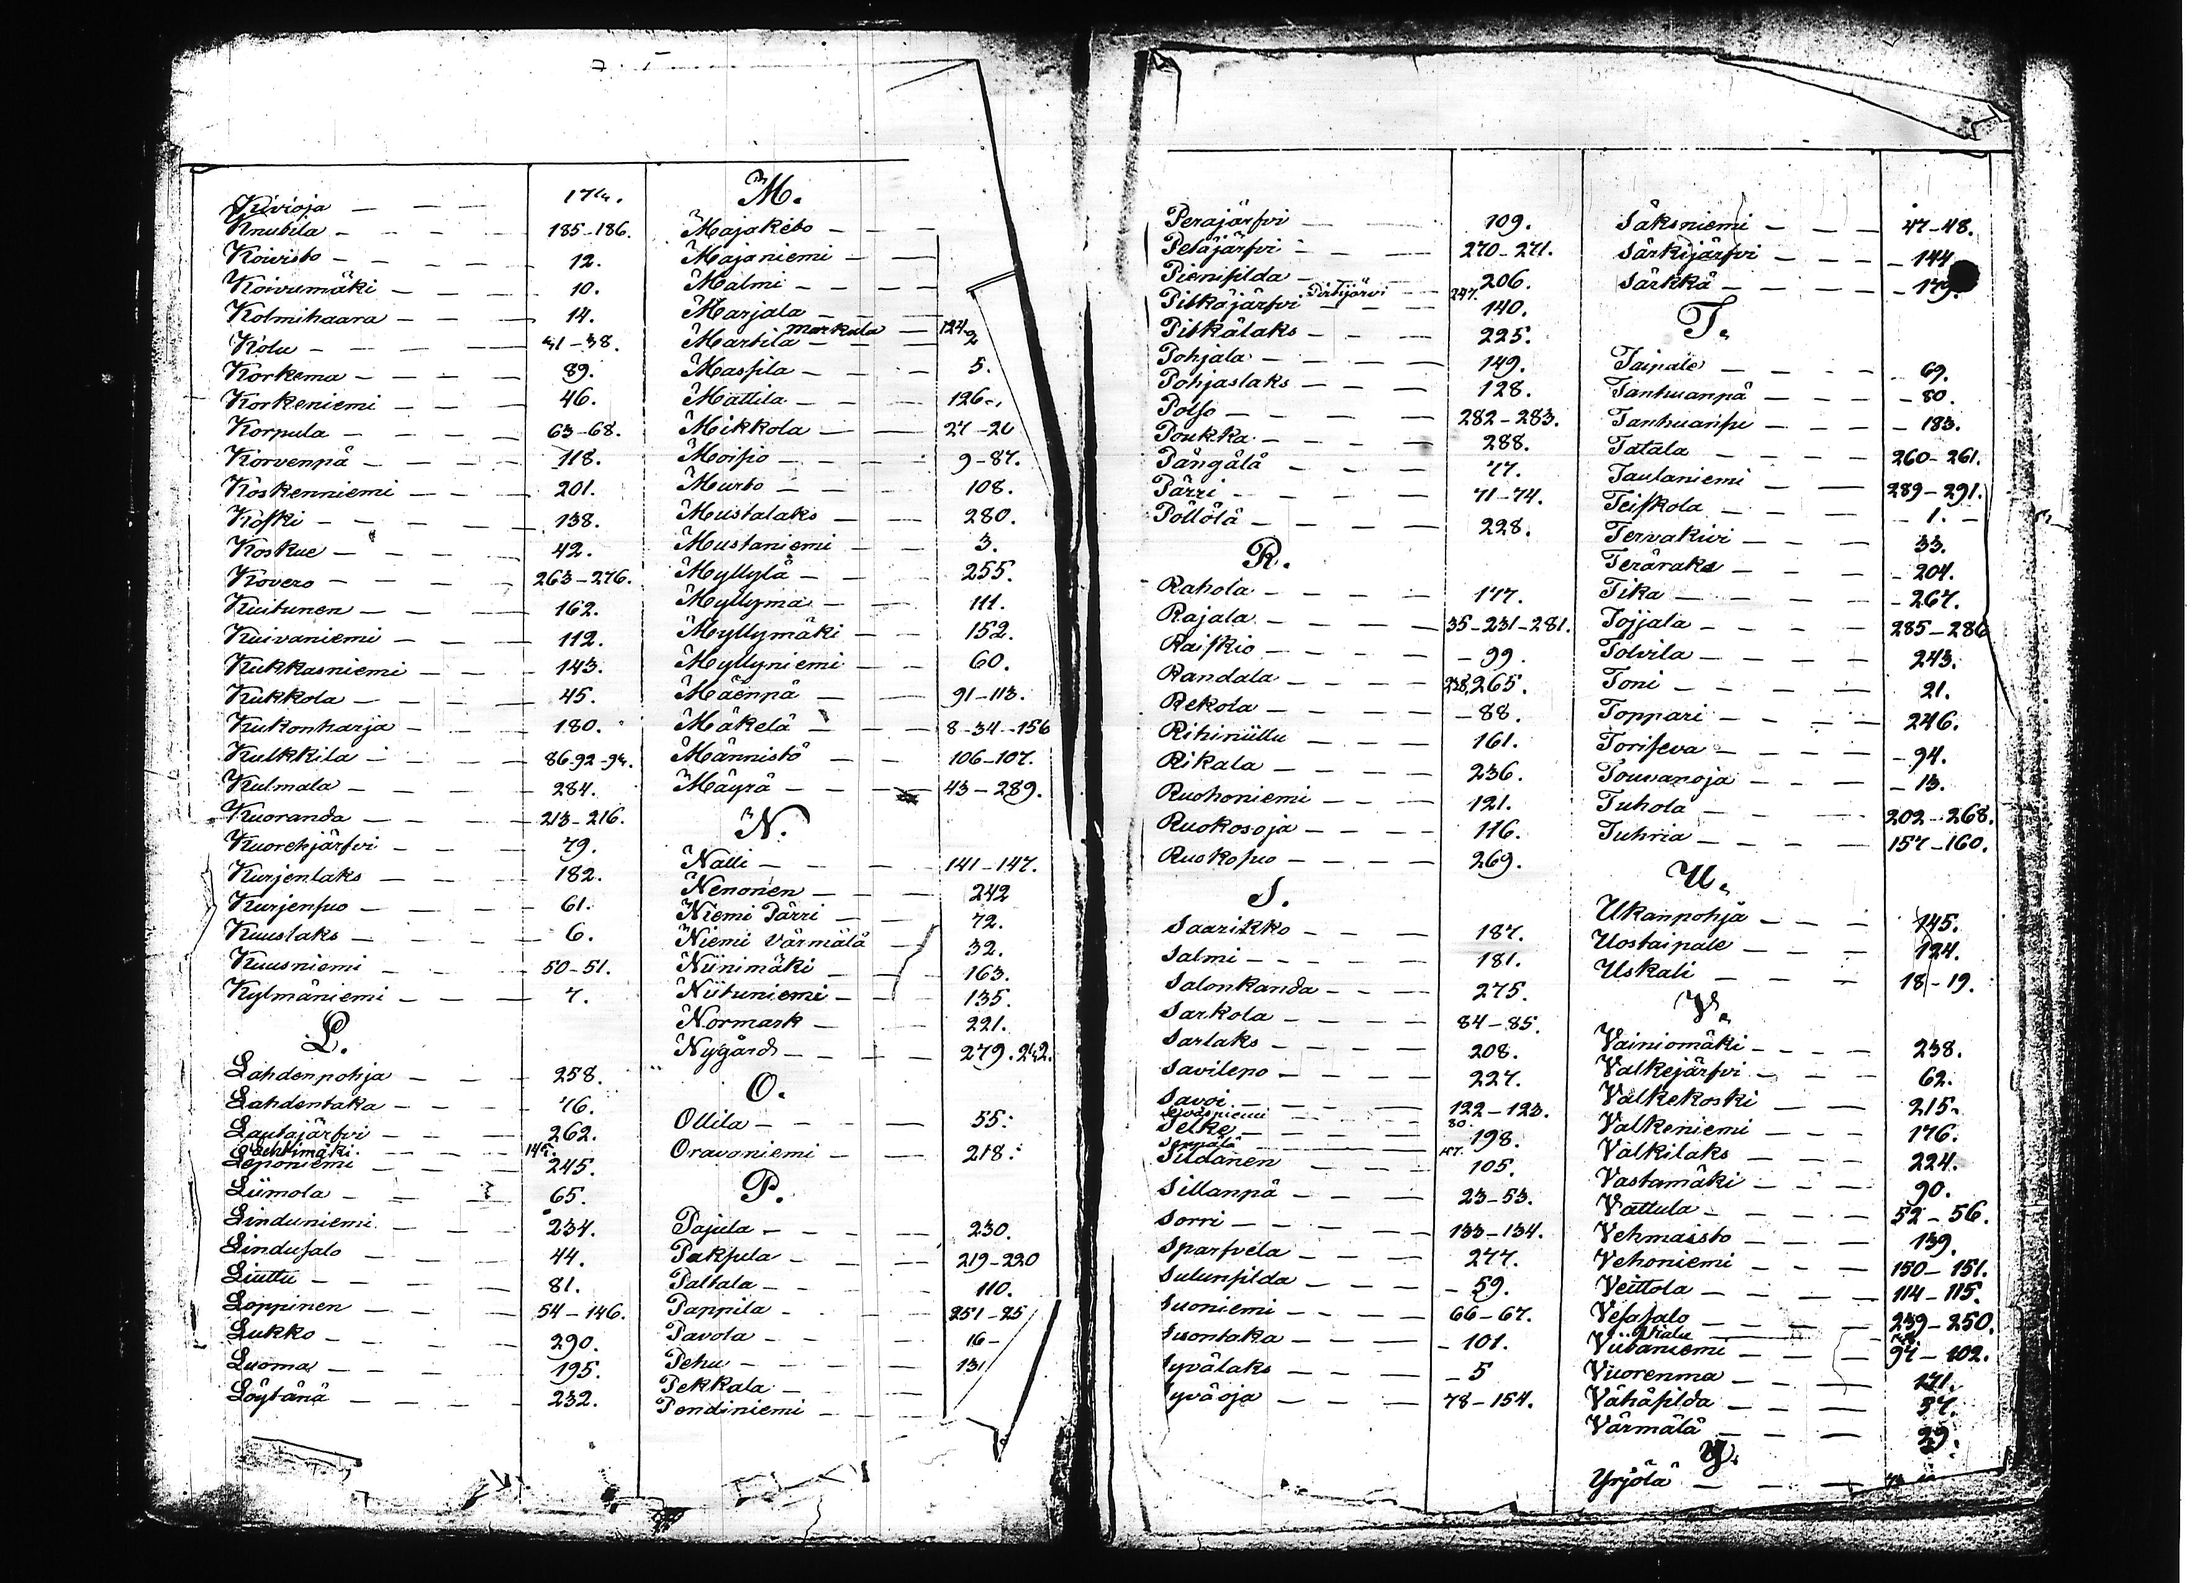 Kivioja — — — 174.
Knutila — — — 185-186.
Koivisto — — — 12.
Koivumäki — — — 10.
Kolmihaara — — — 14.
Kolu — — — 31-38.
Korkema — — — 89.
Korkeniemi — — — 46.
Korpula — — — 63-68.
Korvenpä — — — 118.
Koskenniemi — — — 201.
Koski — — — 138.
Koskue — — — 42.
Kovero — — — 263-276.
Kuitunen — — — 162.
Kuivaniemi — — — 112.
Kukkasniemi — — — 143.
Kukkola — — — 45.
Kukonharja — — — 180.
Kulkkila — — — 86-92-94.
Kulmala — — — 284.
Kuoranda — — — 213-216.
Kuorehjärfvi — — — 79.
Kurjenlaks — — — 182.
Kurjensuo — — — 61.
Kuuslaks — — — 6.
Kuusniemi — — — 50-51.
Kylmäniemi — — — 7.
L.
Lahdenpohja — — — 258.
Lahdentaka — — — 76.
Lautajärfvi — — — 262.
Lehtimäki — — — 145.
Leponiemi — — — 245.
Liimola — — — 65.
Linduniemi — — — 234.
Lindusalo — — — 44.
Liuttu — — — 81.
Loppinen — — — 54-146.
Lukko — — — 290.
Luoma — — — 195.
Löytänä — — — 232.
M.
Majakito — — —
Majaniemi — — —
Malmi — — —
Marjala — — —
Markala — 124
Martila — — — 2
Massila — — — 5.
Mattila — — — 126
Mikkola — — — 27-20
Moisio — — — 9-87.
Murto — — — 108.
Mustalaks — — — 280.
Mustaniemi — — — 3.
Myllylä — — — 255.
Myllymä — — — 111.
Myllymäki — — — 152.
Myllyniemi — — — 60.
Mäenpä — — — 91-113.
Mäkelä — — — 8-34-156
Männistö — — — 106-107.
Mäyrä — — — 43-289.
N.
Nalli — — — 141-147.
Nenonen — — — 242
Niemi Pärri — — — 72.
Niemi Värmälä — 32.
Niinimäki — — — 163.
Niituniemi — — — 135.
Normark — — — 221.
Nygård — — — 279.242.
O.
Ollila — — — 55.
Oravoniemi — — — 218.
P.
Pajula — — — 230.
Paksula — — — 219-220
Paltala — — — 110.
Pappila — — — 251-25
Pavola — — — 16-
Pehu — — — 131
Pekkala — — —
Pendiniemi — — —
Perajärfvi — — — 109.
Petäjärfvi — — — 270-271.
Pienisilda — — — 206.
Pirtijärvi — 247.
Pitkäjärfvi — — — 140.
Pitkälaks — — — 225.
Pohjala — — — 149.
Pohjaslaks — — — 128.
Polso — — — 282-283.
Poukka — — — 288.
Pängälä — — — 77.
Pärri — — — 71-74.
Pöllölä — — — 228.
R.
Rahola — — — 177.
Rajala — — — 35-231-281.
Raiskio — — — 99.
Randala — — — 238,265.
Rekola — — — 88.
Rihiniittu — — — 161.
Rikala — — — 236.
Ruohoniemi — — — 121.
Ruokosoja — — — 116.
Ruskosuo — — — 269.
S.
Saarikko — — — 187.
Salmi — — — 181.
Salonkanda — — — 275.
Sarkola — — — 84-85.
Sarlaks — — — 208.
Savilepo — — — 227.
Savoi — — — 122-123.
80.
Selke — — — 198.
Seppälä — — — 157.
Siidanen — — — 105.
Sillanpä — — — 23-53.
Sorri — — — 133-134.
Sparfvela — — — 277.
Sulunsilda — — — 59.
Suoniemi — — — 66-67.
Suontaka — — — 101.
Syvälaks — — — 5
Syväoja — — — 78-154.
Säksniemi — — — 47-48.
Särkijärfvi — — — 144
Särkkä — — — 179.
T.
Taipale — — — 69.
Tanhuanpä — — — 80.
Tanhuansu — — — 183.
Tatala — — — 260-261.
Taulaniemi — — — 289-291.
Teiskola — — — 1.
Tervakivi — — — 33.
Teräraks — — — 204.
Tika — — — 267.
Tojjala — — — 285-286
Tolvila — — — 243.
Toni — — — 21.
Toppari — — — 246.
Toriseva — — — 94.
Touvanoja — — — 13.
Tuhola — — — 202-268.
Tuhria — — — 157-160.
U.
Ukanpohja — — — 145.
Uostaipale — — — 124.
Uskali — — — 18-19.
V.
Vainiomäki — — — 238.
Valkejärfvi — — — 62.
Valkekoski — — — 215.
Valkeniemi — — — 176.
Valkilaks — — — 224.
Vastamäki — — — 90.
Vattula — — — 52-56.
Vehmaisto — — — 139.
Vehoniemi — — — 150-151.
Veittola — — — 114-115.
Vesasalo — — — 239-250.
Viitaniemi — — — 97-102.
Vuorenma — — — 171.
Vähäsilda — — — 57.
Värmälä — — — 29.
Y.
Yrjölä — — —